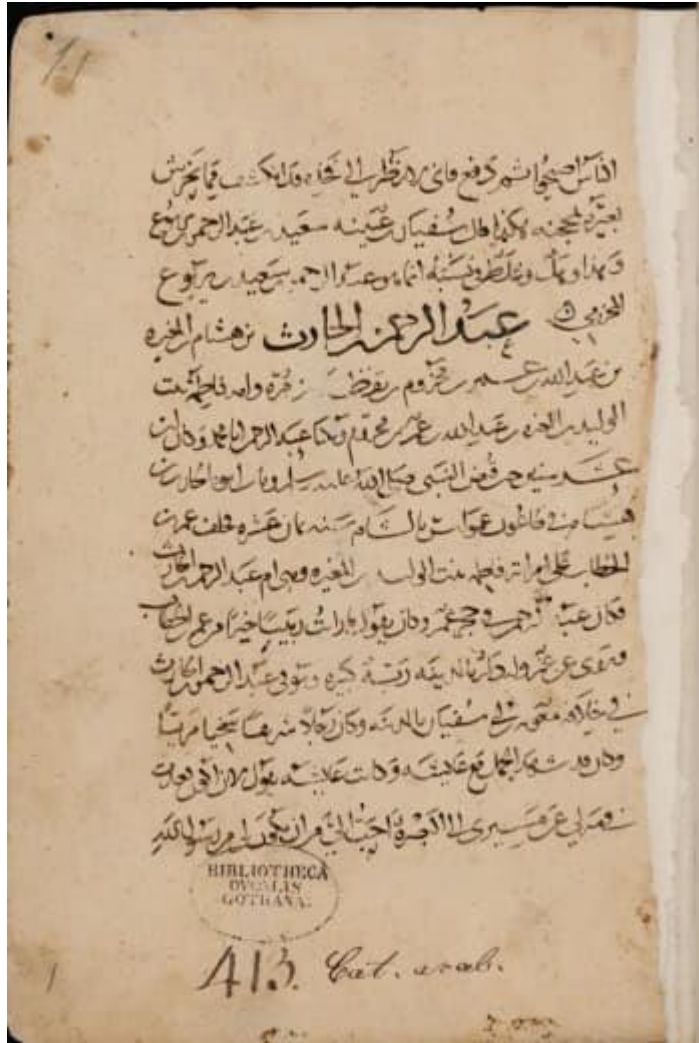 الناس اصبحوا ثم دفع فاني لانظر الى فخذه قد انكشف فيما يخرش
بعيره بمحجنه هكذا قال سفيان بن عيينه سعيد بن عبد الرحمن بن يربوع
وهل وغلط في نسبه انما هو عبد الرحمن بن سعيد بن يربوع
المخزومي ه عبد الرحمن بن الحارث بن هشام بن المغيره
بن عبد الله بن عمر بن مخزوم بن يقظه بن مره وامه فاطمه بنت
الوليد بن المغيره بن عبد الله بن عمر بن مخزوم ويكنا عبد الرحمن ابا محمد وكان ابن
عشر سنين حين قبض النبي صلى الله عليه وسلم ومات ابوه الحارث بن
هشام في طاعون عمواس بالشام سنه ثمان عشره فخلف عمر بن
الخطاب على امراته فاطمه بنت الوليد بن المغيره وهي ام عبد الرحمن بن الحارث
فكان عبد الرحمن في حجر عمر وكان يقول ما رايت ربيبا خيرا من عمر بن الخطاب
وروى عن عمر وله دار بالمدينه ربة كبيره وتوفي عبد الرحمن بن الحارث
في خلافه معويه بن ابي سفيان بالمدينه وكان رجلا شريفا سخيا مريا
وكان قد شهد الجمل مع عايشه وكانت عايشه تقول لان اكون قعدت
في منزلي عن مسيري الى البصرة احب الي من ان يكون لي من رسول الله
BIBLIOTHECA
DVCALIS
GOTHANA.
413. Cat. arab.